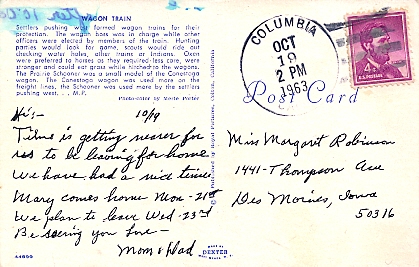 WAGON TRAIN
Settlers pushing west formed wagon trains for their
protection. The wagon boss was in charge while other
officers were elected by members of the train. Hunting
parties would look for game, scouts would ride out
checking water holes, other trains or Indians. Oxen
were preferred to horses as they required less care, were
stronger and could eat grass while hitched to the wagons.
The Prairie Schooner was a small model of the Conestoga
wagon. The Conestoga wagon was used more on the
freight lines, the Schooner was used more by the settlers
pushing west. . . M.P.
Photo-color by Merle Porter
COLUMBIA
OCT
19
2 PM
1963
4¢
U.S. POSTAGE
Post Card
Hi:- 10/19
Time is getting nearer for
us to be leaving for home
We have had a nice time
Mary comes home Mon - 21st
We plan to leave Wed - 23rd
Be seeing you Love -
Mom & Dad
Miss Margaret Robinson
1441 - Thompson Ave
Des Moines, Iowa
50316
Royal Pictures, Colton, California
MADE BY
DEXTER